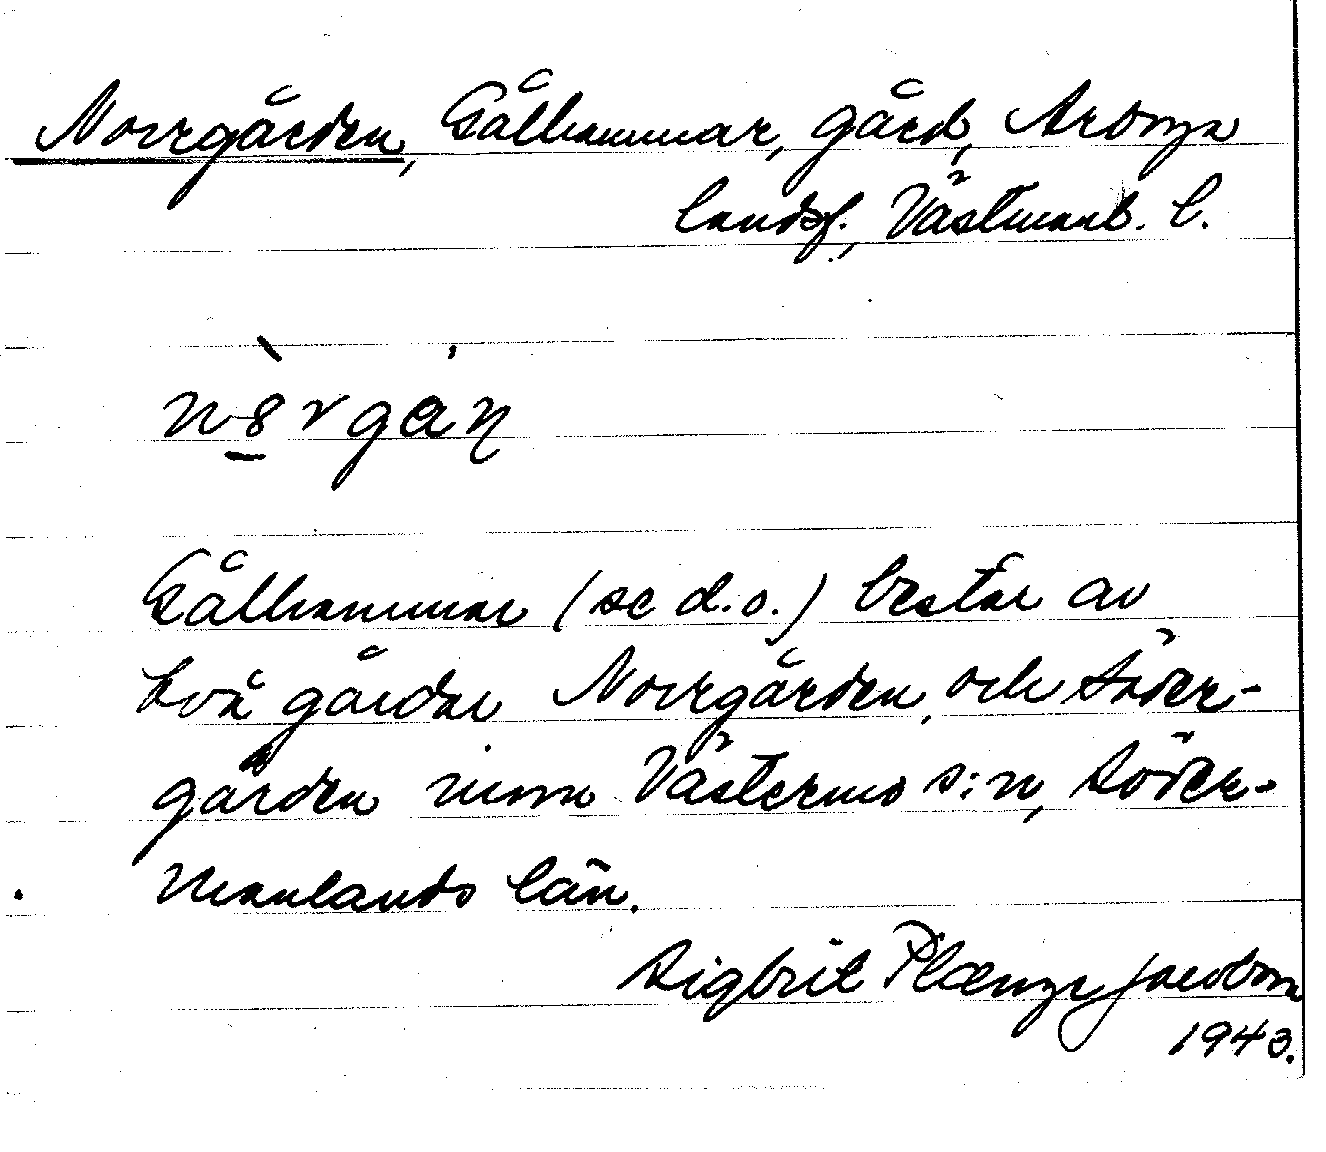 Norrgården, Gålhammar, gård, Arboga
landsf., Västmanl. l.
Gålhammar (se d.o.) består av
två gårdar Norrgården, och Söder-
gården inom Västermo s:n, Söder-
manlands län.
Sigbrit Plænge Jacobson
1943.